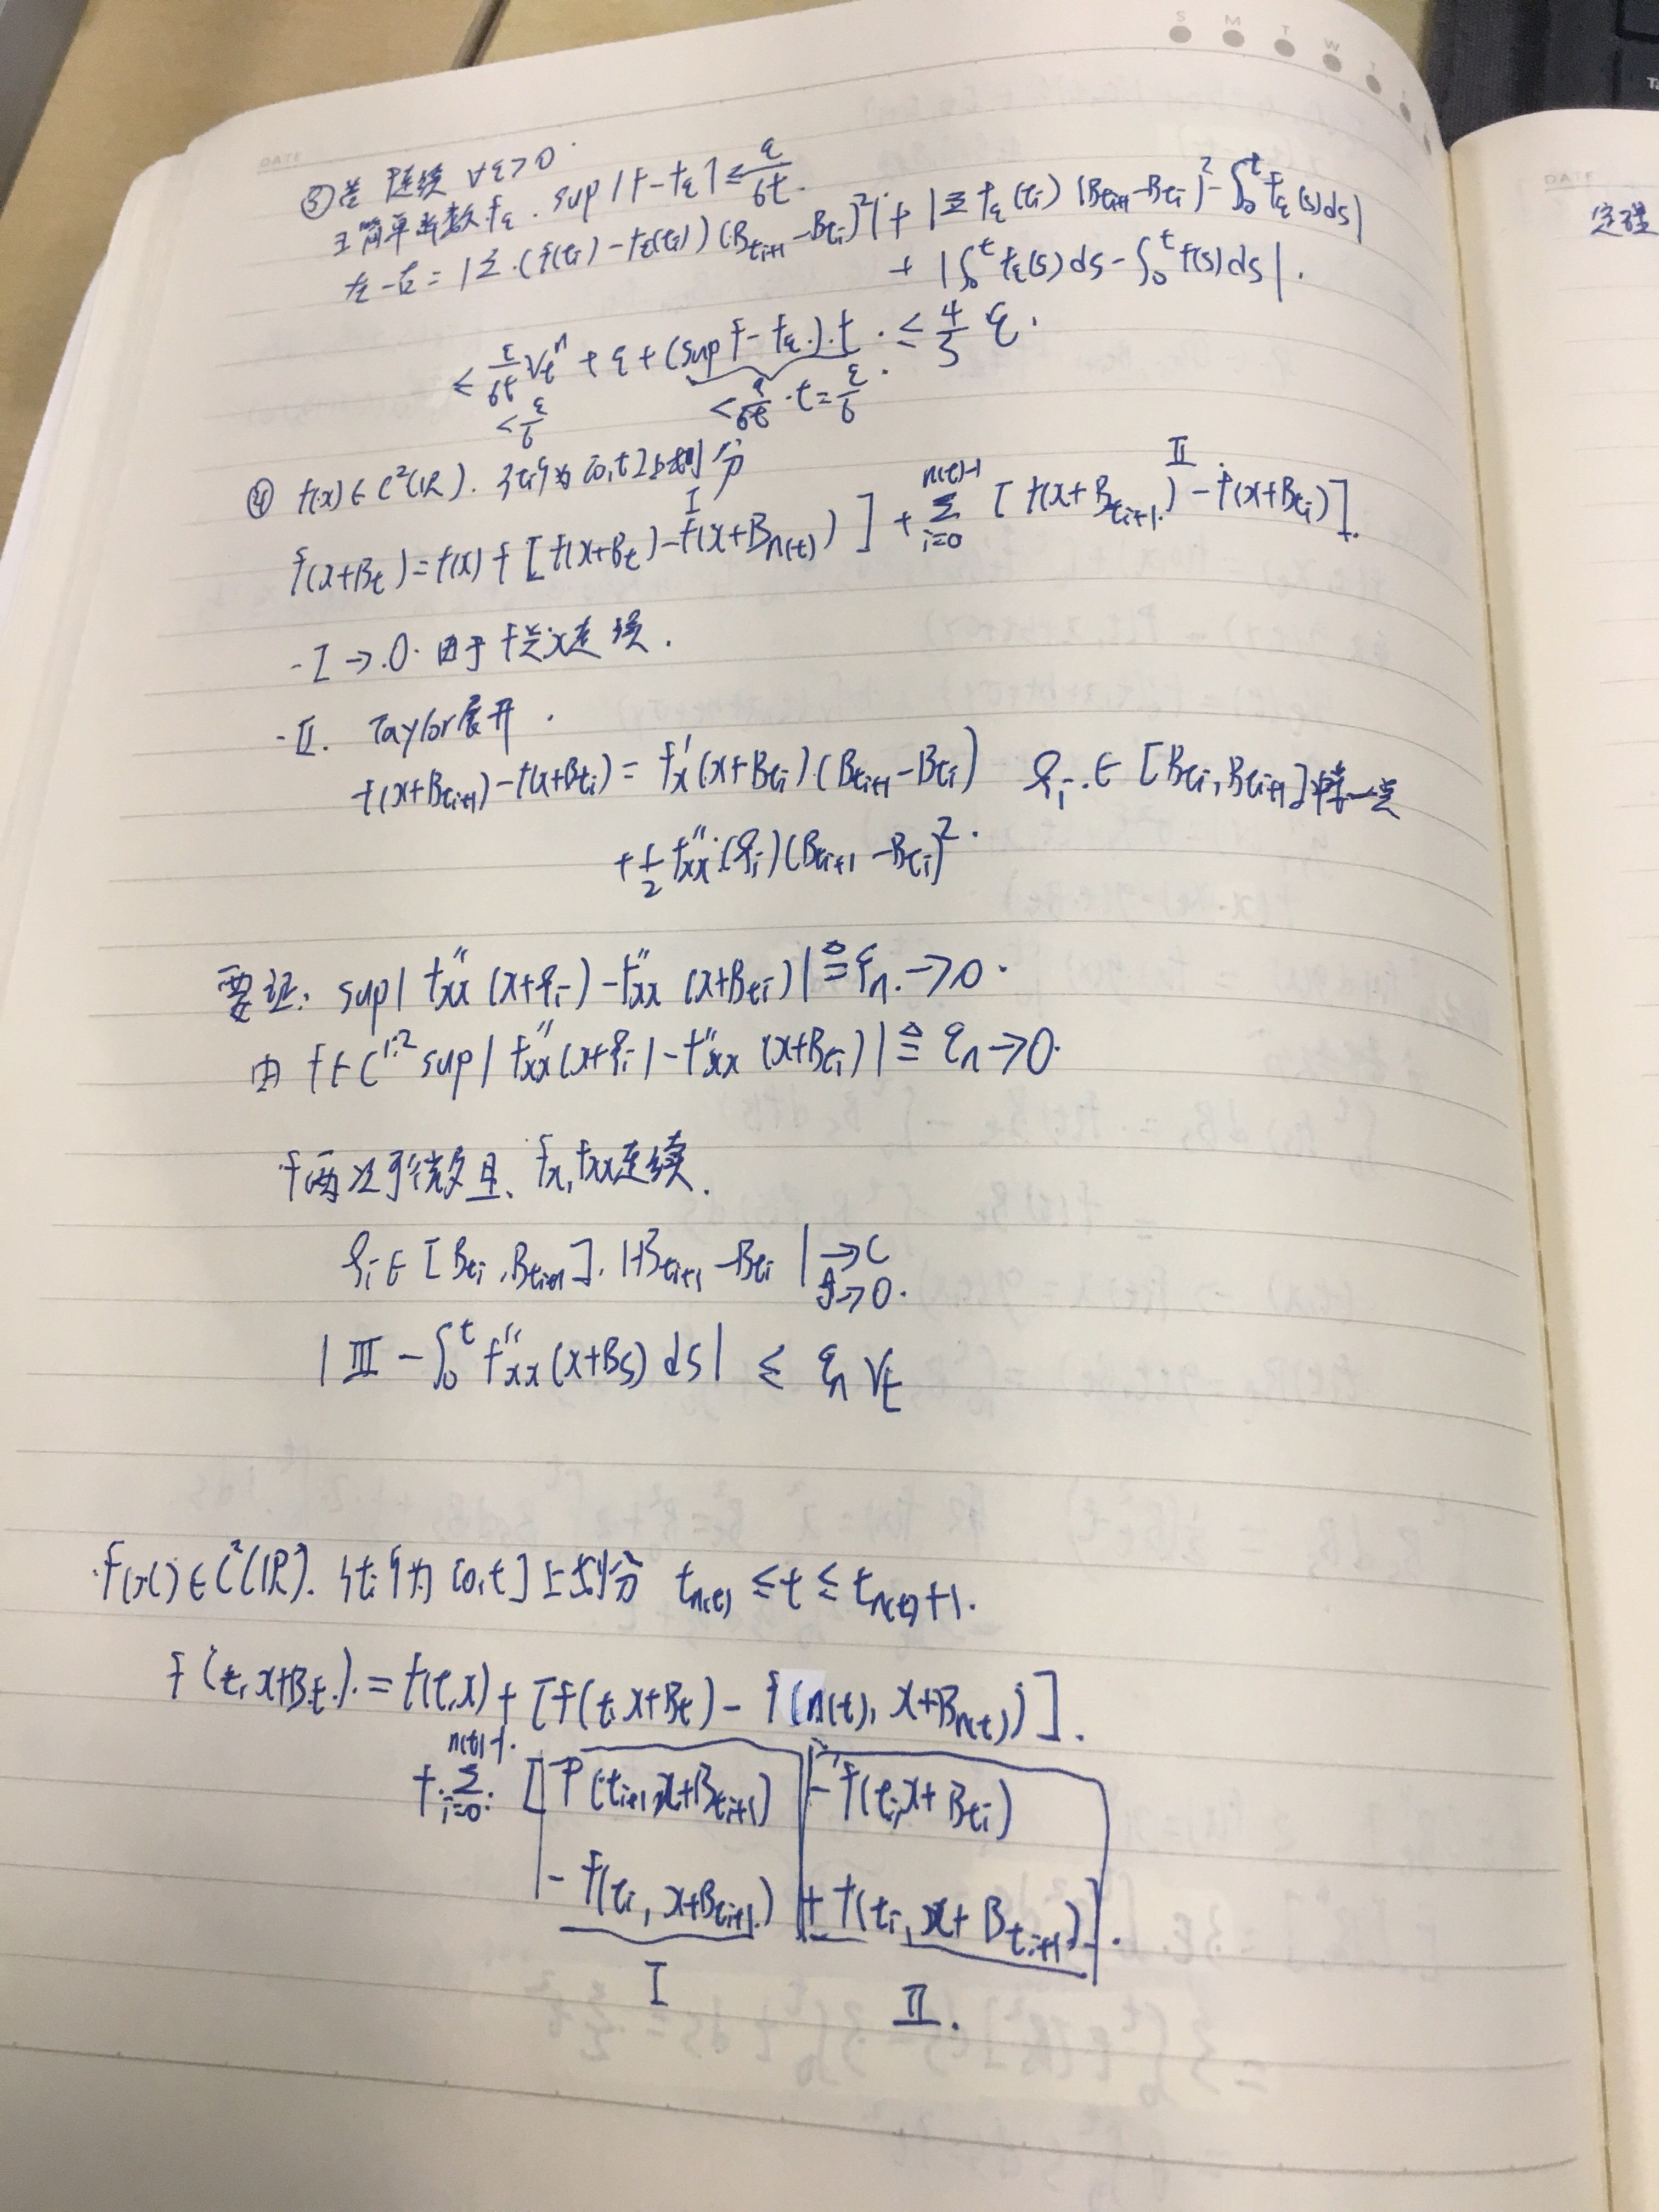 S M T W T
DATE
③若 f连续 ∀ε>0.
∃简单函数 fε. sup|f-fε| ≤ ε/6t.
左-右 = |Σ.(f(ti)-fε(ti))(B_{ti+1}-B_{ti})²| + |Σ fε(ti)(B_{ti+1}-B_{ti})²-∫₀ᵗ fε(s)ds|
+ |∫₀ᵗ fε(s)ds-∫₀ᵗ f(s)ds|.
≤ ε/6t V_tⁿ + ε + (sup f-fε.).t. ≤ 4/3 ε.
<ε/6 <ε/6t ·t=ε/6.
④ f(x)∈C²(IR). {ti}为[0,t]上划分
I II
f(x+Bt)=f(x)+[f(x+Bt)-f(x+B_{n(t)})]+Σ_{i=0}^{n(t)-1}[f(x+B_{ti+1})-f(x+B_{ti})].
-I→0. 由于f关x连续.
-II. Taylor展开.
f(x+B_{ti+1})-f(x+B_{ti})=f'_x(x+B_{ti}).(B_{ti+1}-B_{ti}) ξi.∈[B_{ti},B_{ti+1}]中某一点
+1/2 f''_xx.(ξi)(B_{ti+1}-B_{ti})².
要证: sup|f''_xx(x+ξi)-f''_xx(x+B_{ti})|≜εn.→0.
由 f∈C^{1,2} sup|f''_xx(x+ξi)-f''_xx(x+B_{ti})|≜εn→0.
f两次可微且. fx,fxx连续.
ξi∈[B_{ti},B_{ti+1}]. |B_{ti+1}-B_{ti}|→
→0.
|III-∫₀ᵗ f''_xx(x+Bs)ds| ≤ εn Vt
f(x)∈C²(IR). {ti}为[0,t]上划分 t_{n(t)}≤t≤t_{n(t)+1}.
f(t,x+Bt).=f(t,x)+[f(t,x+Bt)-f(n(t),x+B_{n(t)})].
+.Σ_{i=0}^{n(t)-1}.[f(t_{i+1},x+B_{ti+1}) -f(ti,x+B_{ti})
-f(ti,x+B_{ti+1}) +f(ti,x+B_{ti+1})].
I II.
DATE
定理